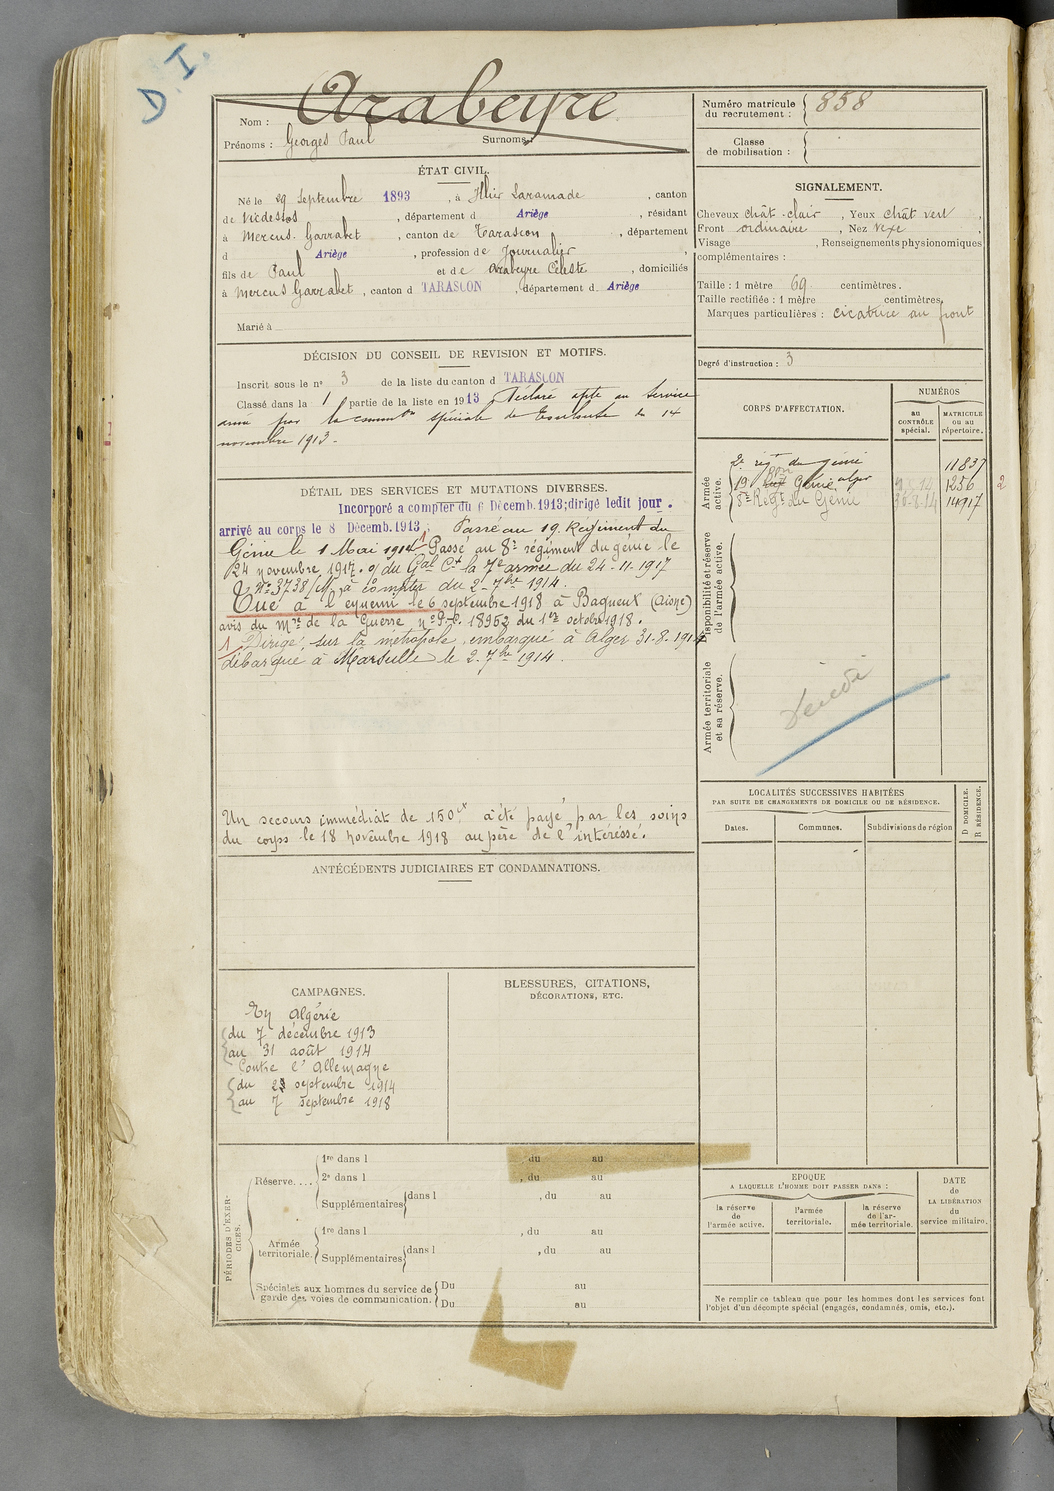 D. I.
Arabeyre
Nom :
Prénoms : Georges Paul Surnoms :
ÉTAT CIVIL.
Né le 29 Septembre 1893, à Illier Laramade, canton
de Vicdessos, département d Ariège, résidant
à Mercus-Garrabet, canton de Tarascon, département
d Ariège, profession de Journalier,
fils de Paul et de Arabeyre Céleste, domiciliés
à Mercus Garrabet, canton d TARASCON, département d Ariège
Marié à
DÉCISION DU CONSEIL DE REVISION ET MOTIFS.
Inscrit sous le n° 3 de la liste du canton d TARASCON
Classé dans la 1 partie de la liste en 1913 Déclaré apte au service
armé par la comm^on spéciale de Toulouse du 14
novembre 1913.
DÉTAIL DES SERVICES ET MUTATIONS DIVERSES.
Incorporé a compter du 6 Décemb. 1913; dirigé ledit jour.
arrivé au corps le 8 Décemb. 1913; Passé au 19. Régiment du
Génie le 1 Mai 1914 1 Passé au 8e régiment du génie le
24 novembre 1917. o/ du Gal Ct la 7e armée du 24-11-1917
N° 3738/M, à compter du 2-7bre 1914.
Tué à l'ennemi le 6 septembre 1918 à Bagneux (Aisne)
avis du Mre de la Guerre n° P.E. 18952 du 1er octobre 1918.
1 Dirigé sur la métropole, embarqué à Alger 31-8-1914
débarqué à Marseille le 2-7bre 1914.
Un secours immédiat de 150 a été payé par les soins
du corps le 18 novembre 1918 au père de l'intéressé.
ANTÉCÉDENTS JUDICIAIRES ET CONDAMNATIONS.
CAMPAGNES.
En Algérie
du 7 décembre 1913
au 31 août 1914
Contre l'Allemagne
du 2 septembre 1914
au 7 septembre 1918
BLESSURES, CITATIONS,
DÉCORATIONS, ETC.
PÉRIODES D'EXERCICES.
Réserve....
1re dans l , du au
2e dans l , du au
Supplémentaires dans l , du au
Armée territoriale.
1re dans l , du au
Supplémentaires dans l , du au
Spéciales aux hommes du service de
garde des voies de communication.
Du au
Du au
Numéro matricule
du recrutement : 858
Classe
de mobilisation :
SIGNALEMENT.
Cheveux chât-clair, Yeux chât vert,
Front ordinaire, Nez vexe,
Visage , Renseignements physionomiques
complémentaires :
Taille : 1 mètre 69 centimètres.
Taille rectifiée : 1 mètre centimètres.
Marques particulières : cicatrice au front
Degré d'instruction : 3
CORPS D'AFFECTATION.
NUMÉROS
au
CONTRÔLE
spécial.
MATRICULE
ou au
répertoire.
Armée
active.
2e régt du génie 11837
19 Génie 1256 2
8e Régt du Génie 14917
Disponibilité et réserve
de l'armée active.
Armée territoriale
et sa réserve.
Décédé
LOCALITÉS SUCCESSIVES HABITÉES
PAR SUITE DE CHANGEMENTS DE DOMICILE OU DE RÉSIDENCE.
Dates.
Communes.
Subdivisions de région
D DOMICILE.
R RÉSIDENCE.
EPOQUE
A LAQUELLE L'HOMME DOIT PASSER DANS :
la réserve
de
l'armée active.
l'armée
territoriale.
la réserve
de l'ar-
mée territoriale.
DATE
de
LA LIBÉRATION
du
service militaire.
Ne remplir ce tableau que pour les hommes dont les services font
l'objet d'un décompte spécial (engagés, condamnés, omis, etc.).